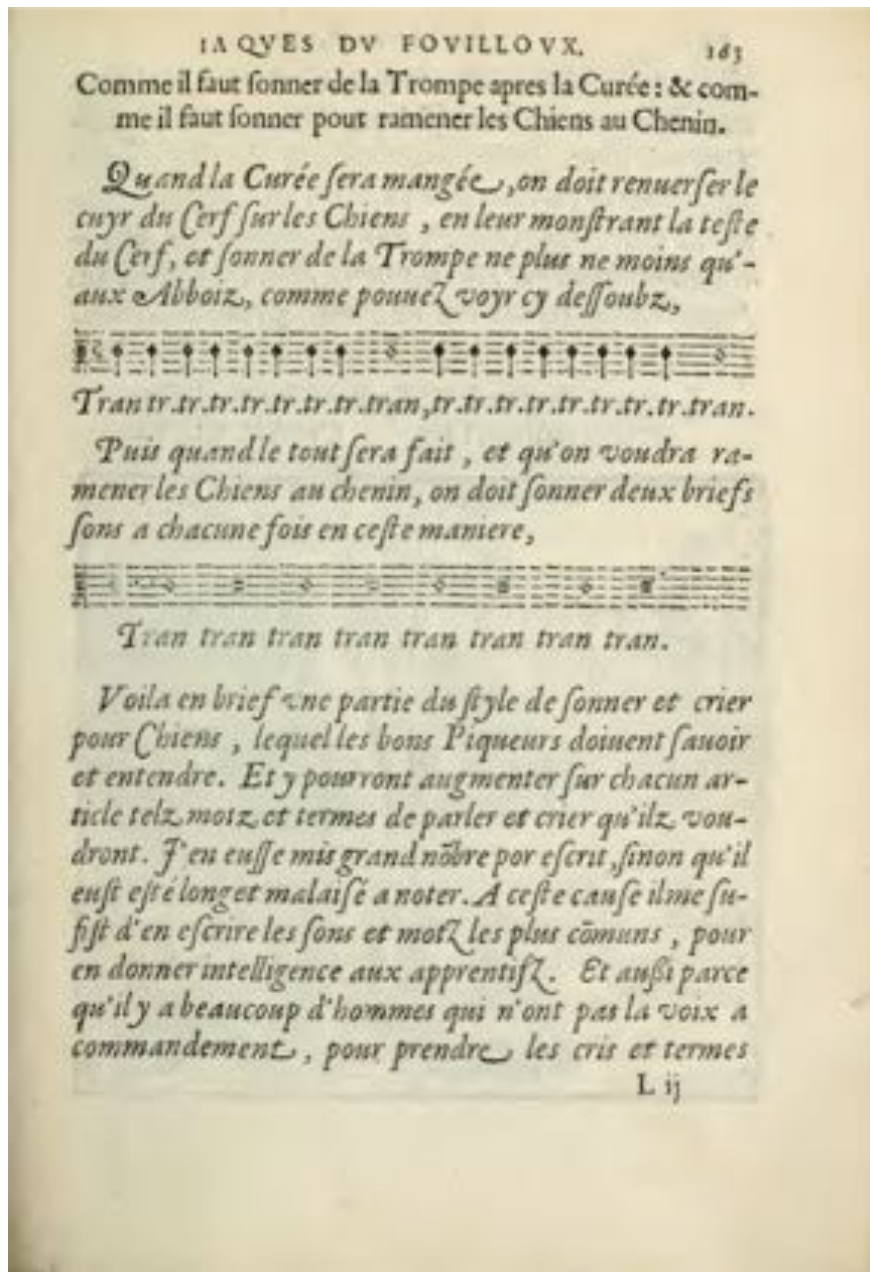 IAQVES DV FOVILLOVX. 163
Comme il faut ſonner de la Trompe apres la Curée: & com-
me il faut ſonner pour ramener les Chiens au Chenin.
Quand la Curée ſera mangée, on doit renuerſer le
cuyr du Cerf ſur les Chiens, en leur monſtrant la teſte
du Cerf, et ſonner de la Trompe ne plus ne moins qu'-
aux Abboiz, comme pouuez voyr cy deſſoubz,
Tran tr.tr.tr.tr.tr.tr.tr.tran,tr.tr.tr.tr.tr.tr.tr.tr.tran.
Puis quand le tout ſera fait, et qu'on voudra ra-
mener les Chiens au chenin, on doit ſonner deux briefs
ſons a chacune fois en ceſte maniere,
Tran tran tran tran tran tran tran tran.
Voila en brief vne partie du ſtyle de ſonner et crier
pour Chiens, lequel les bons Piqueurs doiuent ſauoir
et entendre. Et y pourront augmenter ſur chacun ar-
ticle telz motz et termes de parler et crier qu'ilz vou-
dront. J'en euſſe mis grand nõbre por eſcrit, ſinon qu'il
euſt eſté long et malaiſé a noter. A ceſte cauſe il me ſu-
fiſt d'en eſcrire les ſons et motz les plus cõmuns, pour
en donner intelligence aux apprentifz. Et außi parce
qu'il y a beaucoup d'hommes qui n'ont pas la voix a
commandement, pour prendre les cris et termes
L ij